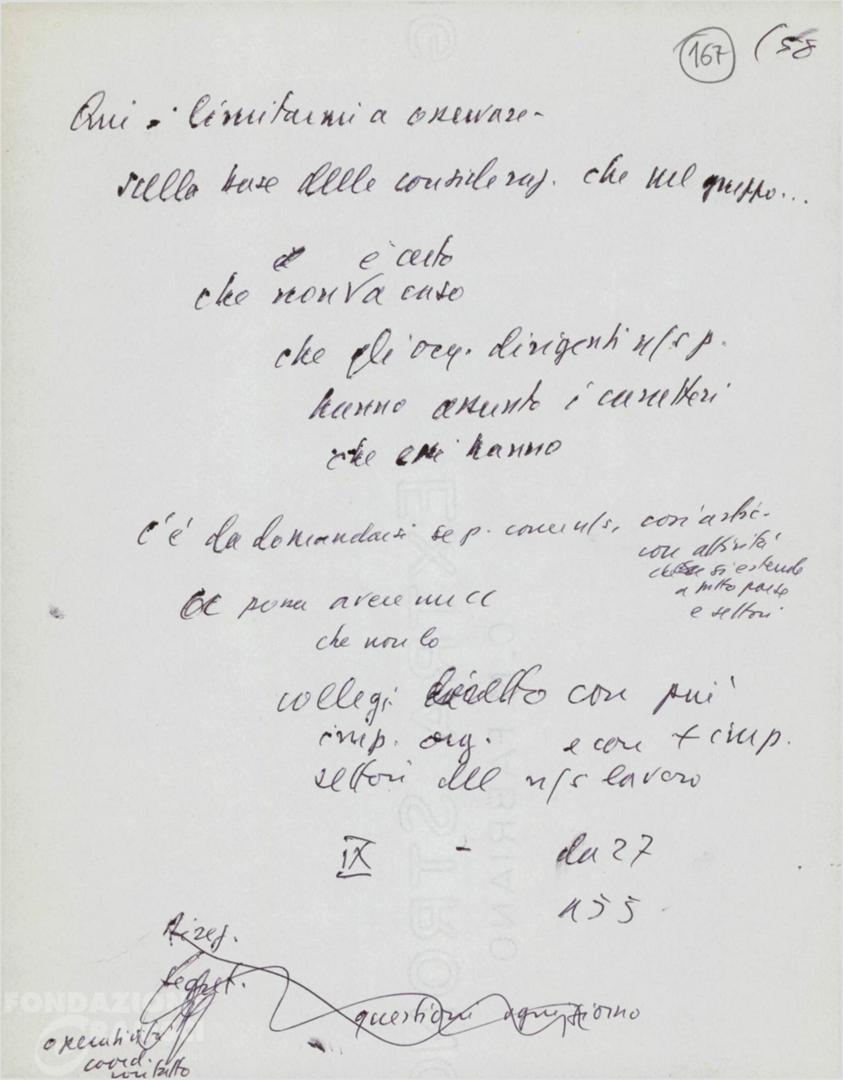 167 (58
Qui limitarmi a osservare -
sulla base delle consideraz. che nel gruppo...
è certo
che non va caso
che gli org. dirigenti n/s p.
hanno assunto i caratteri
che essi hanno
c'è da domandarsi se p. come n/s, così artic.
con attività
che si estende
a tutto paese
e settori
possa avere una CC
che non lo
collegi diretto con più
imp. org. e con + imp.
settori del n/s lavoro
IX - da 27
a 55
Direz.
Segret.
questioni ogni giorno
operatività
coord.
contatto
FONDAZION
GRA
EXTRA STRONG
C. M. FABRIANO